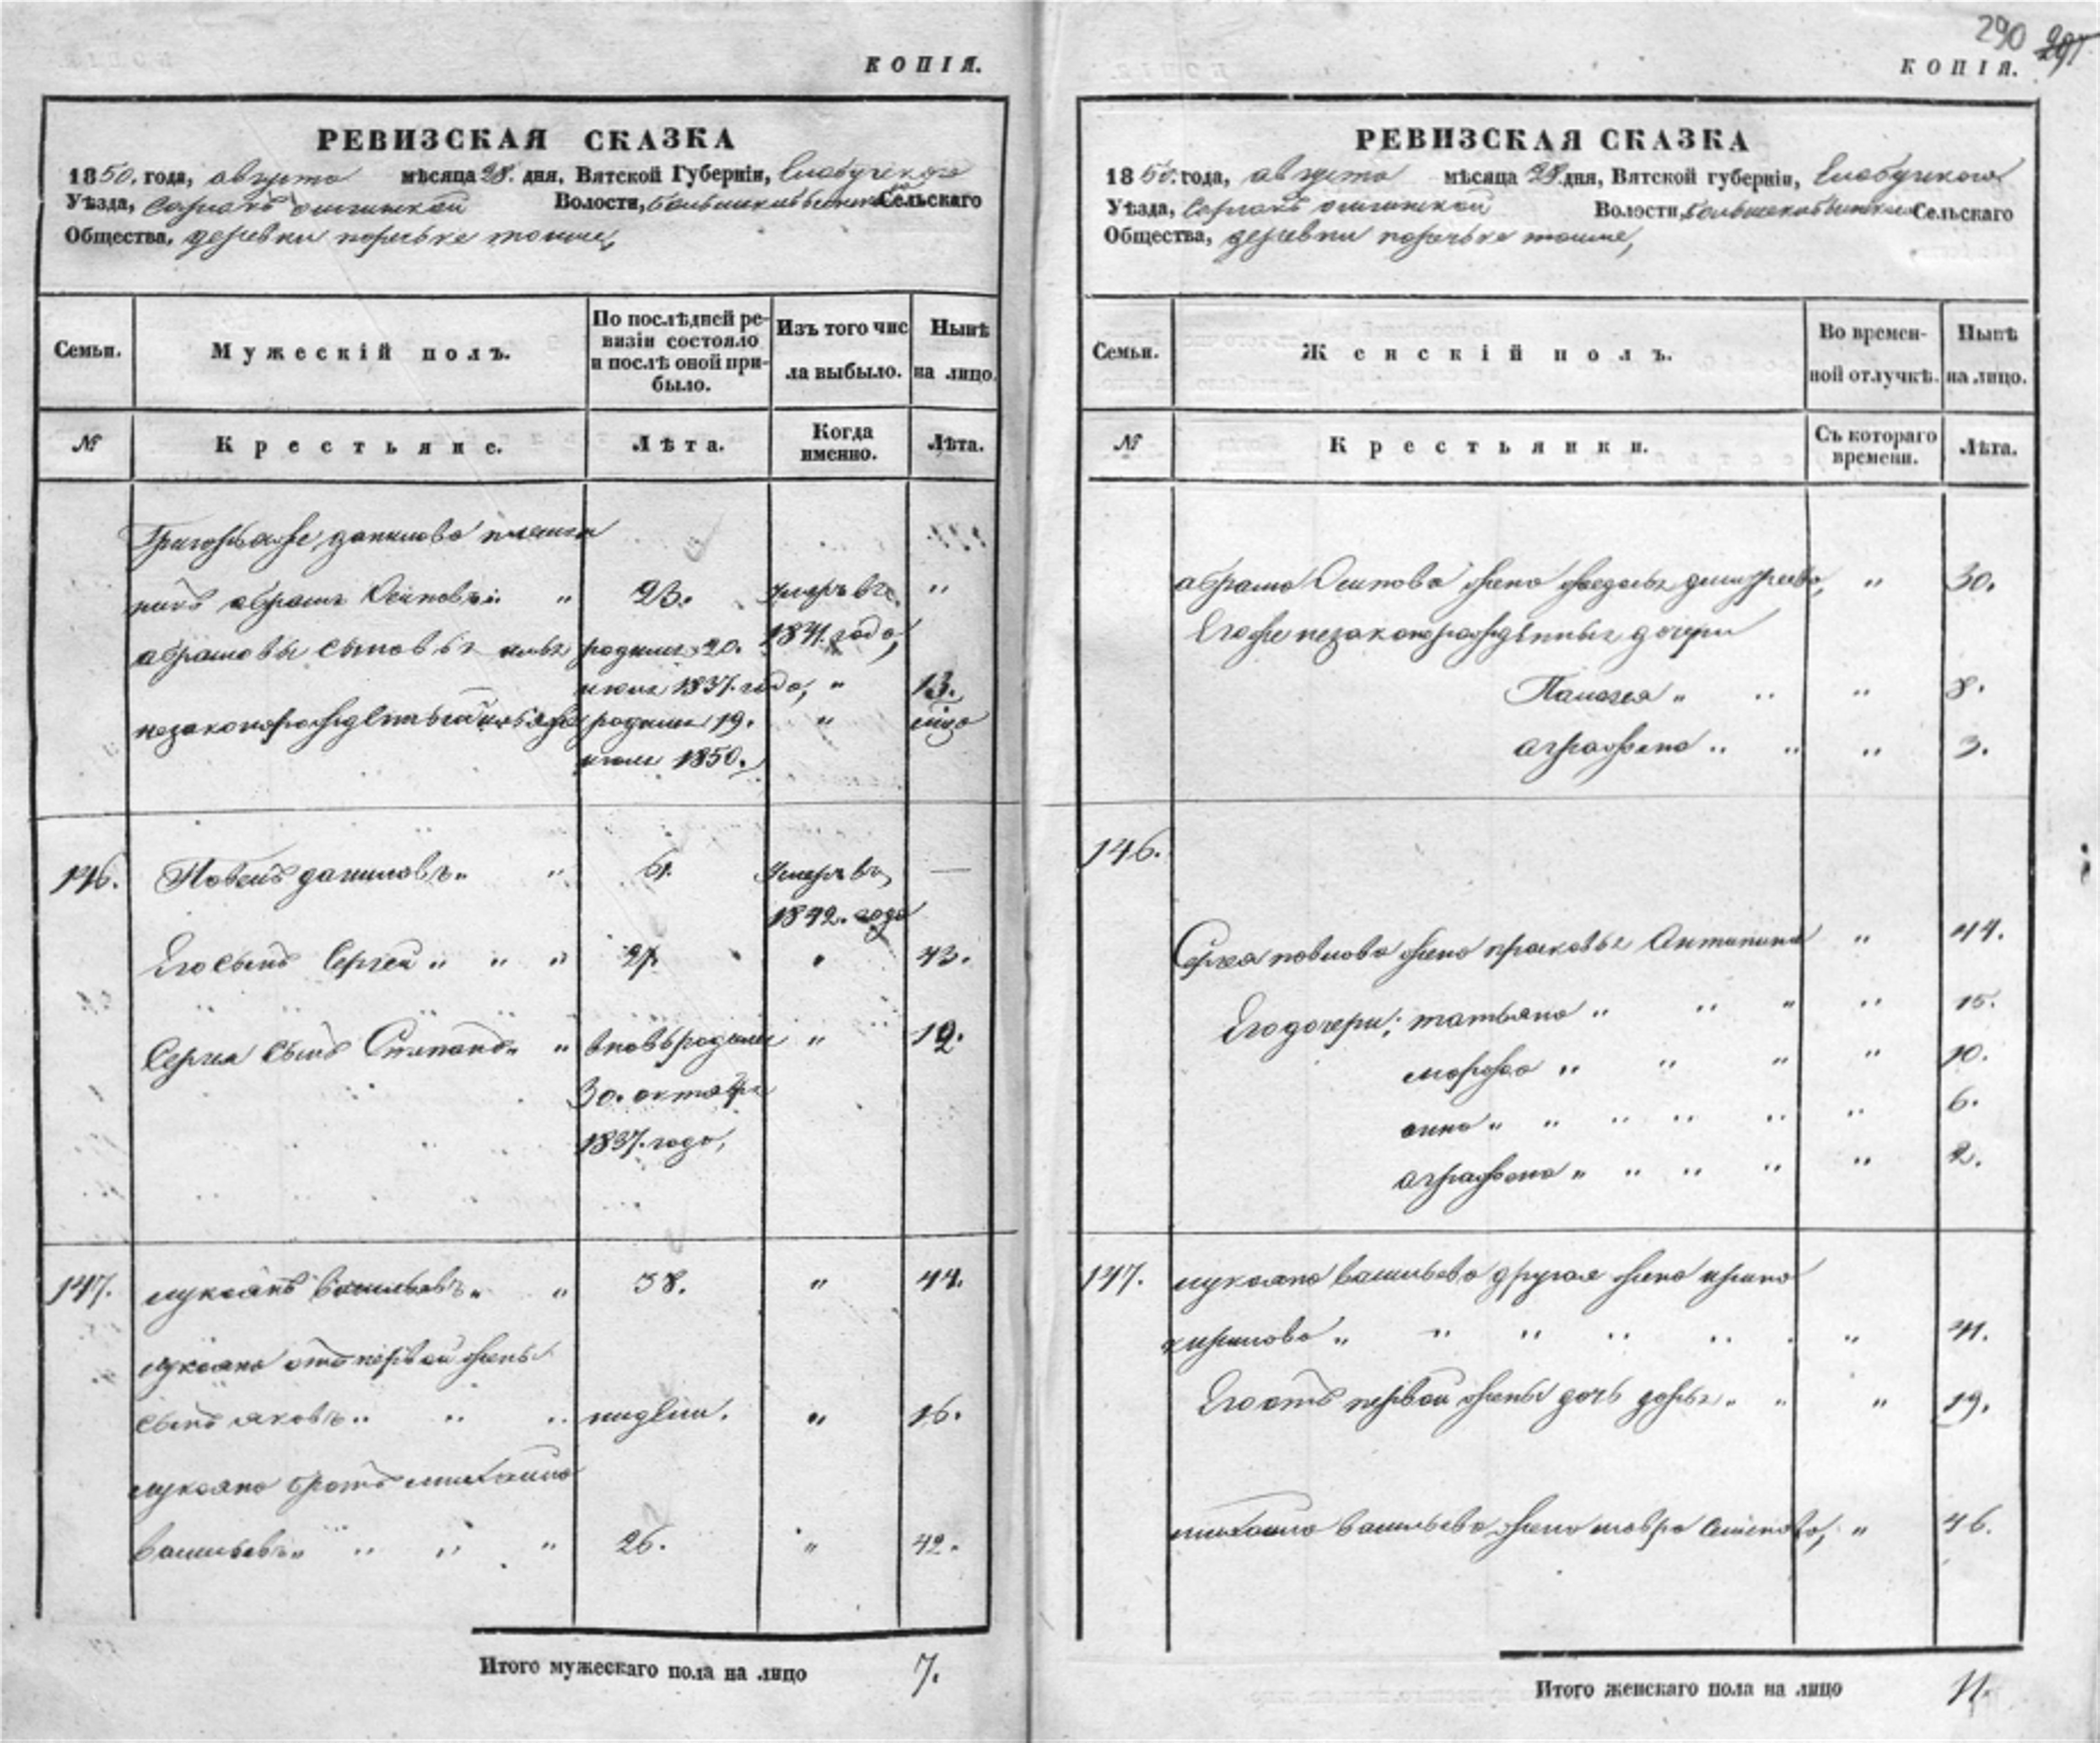 290 291
КОПІЯ.
РЕВИЗСКАЯ СКАЗКА
1850. года, августа мѣсяца 28. дня, Вятской Губерніи, Елабугскаго
Уѣзда, Волости, Сельскаго
Общества, деревни
Семьи. Мужескій полъ. По послѣдней ревизіи состояло и послѣ оной прибыло. Изъ того числа выбыло. Нынѣ на лицо.
№ Крестьяне. Лѣта. Когда именно. Лѣта.
данилова племян
никъ абрамъ Осиповъ „ 23. умеръ въ „
абрамовы сыновья родился 20. 1841. года,
июля 1837. года, „ 13.
незаконорожденный родился 19. „
июля 1850.
146. Павелъ даниловъ „ „ 61. Умеръ въ —
1842. года
Его сынъ Сергей „ „ „ 27. „ 43.
Сергея сынъ Степанъ „ „ вновь родился „ 12.
30. октября
1837. года,
147. лукоянъ васильевъ „ „ 38. „ 44.
лукояна отъ первой жены
сынъ яковъ „ „ „ „ 16.
лукояна братъ михаило
васильевъ „ „ „ „ 26. „ 42.
Итого мужескаго пола на лицо 7.
КОПІЯ.
РЕВИЗСКАЯ СКАЗКА
1850. года, августа мѣсяца 28. дня, Вятской губерніи, Елабугскаго
Уѣзда, Волости, Сельскаго
Общества, деревни
Семьи. Женскій полъ. Во временной отлучкѣ. Нынѣ на лицо.
№ Крестьянки. Съ котораго времени. Лѣта.
абрама Осипова жена дмитреева, „ 30.
Егоже незаконорожденныя дочери
Палагея „ „ „ 8.
аграфена „ „ „ 3.
146.
Сергея павлова жена прасковья Антипина „ 44.
Его дочери; татьяна „ „ „ „ 15.
марфа „ „ „ „ 10.
анна „ „ „ „ „ „ 6.
аграфена „ „ „ „ „ 2.
147. лукояна васильева другая жена ирина
кирилова „ „ „ „ „ „ 41.
Его отъ первой жены дочь дарья „ „ „ 19.
михаила васильева жена мавра семенова, „ 46.
Итого женскаго пола на лицо 11.